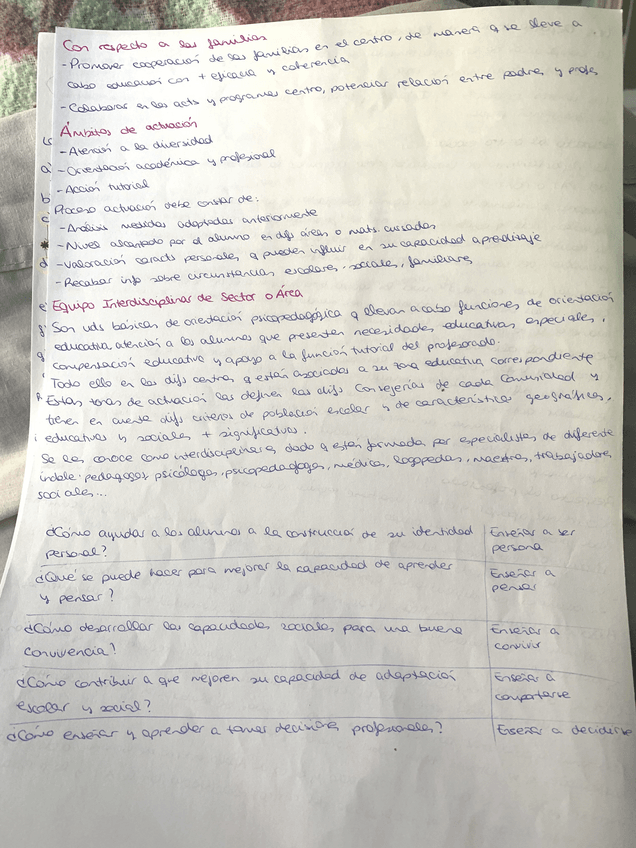 Con respecto a las familias
- Promover cooperación de las familias en el centro, de manera q se lleve a
cabo educación con + eficacia y coherencia
- Colaborar en las acts y programas centro, potenciar relación entre padres y profes
Ámbitos de actuación
- Atención a la diversidad
a) - Orientación académica y profesional
- Acción tutorial
b Proceso actuación debe constar de:
c - Análisis medidas adoptadas anteriormente
- Nivel alcanzado por el alumno en difs áreas o mats. cursadas
d - Valoración caracts personales q pueden influir en su capacidad aprendizaje
- Recabar info sobre circunstancias escolares, sociales, familiares
e Equipo Interdisciplinar de Sector o Área
Son uds básicas de orientación psicopedagógica q llevan a cabo funciones de orientación
educativa, atención a los alumnos que presenten necesidades educativas especiales,
g compensación educativa y apoyo a la función tutorial del profesorado.
Todo ello en los difs centros q están asociados a su zona educativa correspondiente
Estas zonas de actuación las definen las difs Consejerías de cada Comunidad y
tienen en cuenta difs criterios de población escolar y de características geográficas,
i educativas y sociales + significativas.
Se les conoce como interdisciplinares dado q están formada por especialistas de diferente
índole: pedagogos, psicólogos, psicopedagogos, médicos, logopedas, maestros, trabajadores
sociales...
¿Cómo ayudar a los alumnos a la construcción de su identidad
personal?
Enseñar a ser
persona
¿Qué se puede hacer para mejorar la capacidad de aprender
y pensar?
Enseñar a
pensar
¿Cómo desarrollar las capacidades sociales para una buena
convivencia?
Enseñar a
convivir
¿Cómo contribuir a que mejoren su capacidad de adaptación
escolar y social?
Enseñar a
comportarse
¿Cómo enseñar y aprender a tomar decisiones profesionales?
Enseñar a decidirse